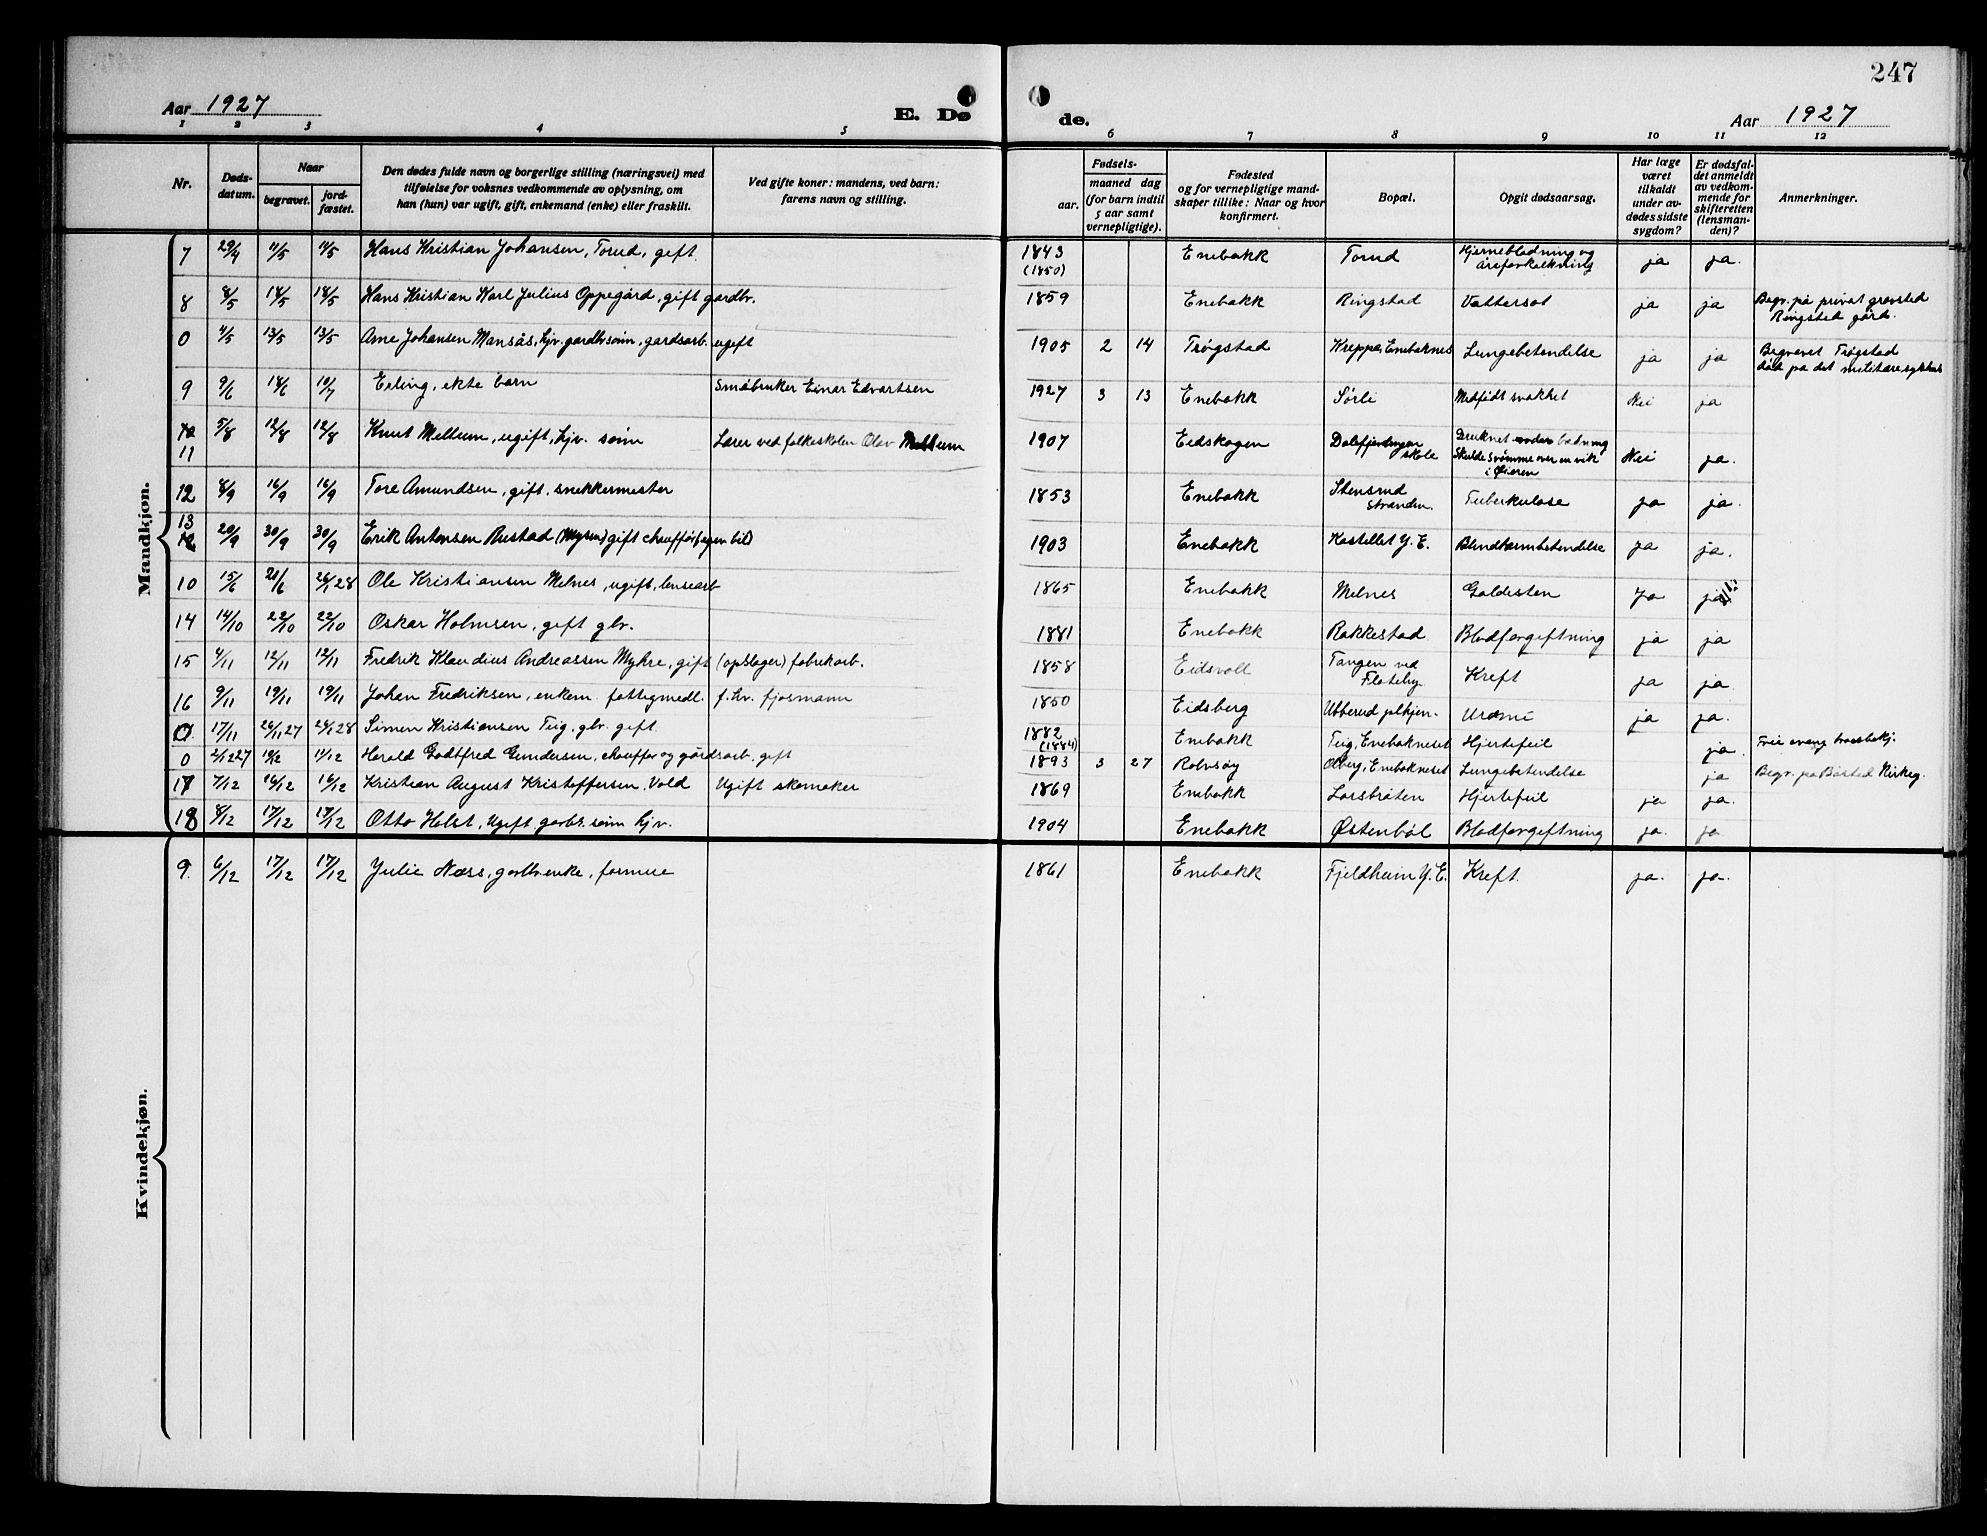 247
Aar 1927
E. Dø
de.
Aar 1927
1 2 3 4 5 6 7 8 9 10 11 12
Nr.
Døds-
datum.
Naar
begravet.
jord-
fæstet.
Den dødes fulde navn og borgerlige stilling (næringsvei) med
tilføielse for voksnes vedkommende av oplysning, om
han (hun) var ugift, gift, enkemand (enke) eller fraskilt.
Ved gifte koner: mandens, ved barn:
farens navn og stilling.
Fødsels-
aar.
maaned dag
(for barn indtil
5 aar samt
vernepligtige).
Fødested
og for vernepligtige mand-
skaper tillike: Naar og hvor
konfirmert.
Bopæl.
Opgit dødsaarsag.
Har læge
været
tilkaldt
under av-
dødes sidste
sygdom?
Er dødsfal-
det anmeldt
av vedkom-
mende for
skifteretten
(lensman-
den)?
Anmerkninger.
Mandkjøn.
7 29/4 11/5 11/5 Hans Kristian Johansen, Torud, gift 1843 (1850) Enebakk Torud Hjerneblødning og åreforkalkning ja ja.
8 8/5 18/5 18/5 Hans Kristian Karl Julius Oppegård, gift gardbr. 1859 Enebakk Ringstad Vattersot ja ja Begr. på privat gravsted Ringstad gård.
0 4/5 13/5 13/5 Arne Johansen Mansås, hjv. gardbrsønn, gardsarb. ugift 1905 2 14 Trøgstad Kreppa, Enebaknes Lungebetendelse ja ja Begravet Trøgstad død på det militære sykehus
9 9/6 18/6 10/7 Erling, ekte barn Småbruker Einar Edvartsen 1927 3 13 Enebakk Sørli Medfødt svakhet Nei ja
11 5/8 12/8 12/8 Knut Mellum, ugift, hjv. sønn Lærer ved folkeskolen Olav Mellum 1907 Eidskogen Dalefjerdingen skole Druknet under badning Skulde svømme over en vik i Øieren Nei ja.
12 8/9 16/9 16/9 Tore Amundsen, gift, snekkermester 1853 Enebakk Stensrud Stranden. Tuberkulose ja ja.
13 20/9 30/9 30/9 Erik Antonsen Rustad (Myren) gift chauffør (egen bil) 1903 Enebakk Kastellet Y. E. Blindtarmbetendelse ja ja.
10 15/6 21/6 26/1 28 Ole Kristiansen Melnes, ugift, lensearb 1865 Enebakk Melnes Galdesten Ja ja
14 14/10 22/10 22/10 Oskar Holmsen, gift gbr. 1881 Enebakk Rakkestad Blodforgiftning ja ja
15 4/11 12/11 12/11 Fredrik Klaudius Andreassen Myhre, gift (opslager) fabrikarb. 1858 Eidsvoll Tangen ved Flateby Kreft ja ja
16 9/11 19/11 19/11 Johan Fredriksen, enkem. fattigmedl. f. hv. fjøsmann 1850 Eidsberg Ubberud plhjem. Uræmi ja ja.
0 17/11 26/11 27 24/1 28 Simen Kristiansen Teig, gbr. gift 1882 (1884) Enebakk Teig, Enebakneset Hjertefeil ja Frie evang trosbekj.
0 2/12 27 19/12 11/12 Harald Godtfred Gundersen, chauffør og gårdsarb. gift 1893 3 27 Rolvsøy Olberg, Enebakneset Lungebetendelse ja Begr. på Båstad Kirkeg.
17 7/12 16/12 16/12 Kristian August Kristoffersen Vold Ugift skomaker 1869 Enebakk Larsbråten Hjertefeil ja ja.
18 8/12 17/12 17/12 Otto Holst, Ugift garbr. sønn hjv. 1904 Enebakk Østenbøl Blodforgiftning ja. ja
Kvindekjøn.
9. 6/12 17/12 17/12 Julie Næss, garbr. enke, formue 1861 Enebakk Fjeldheim Y. E. Kreft. ja. ja.